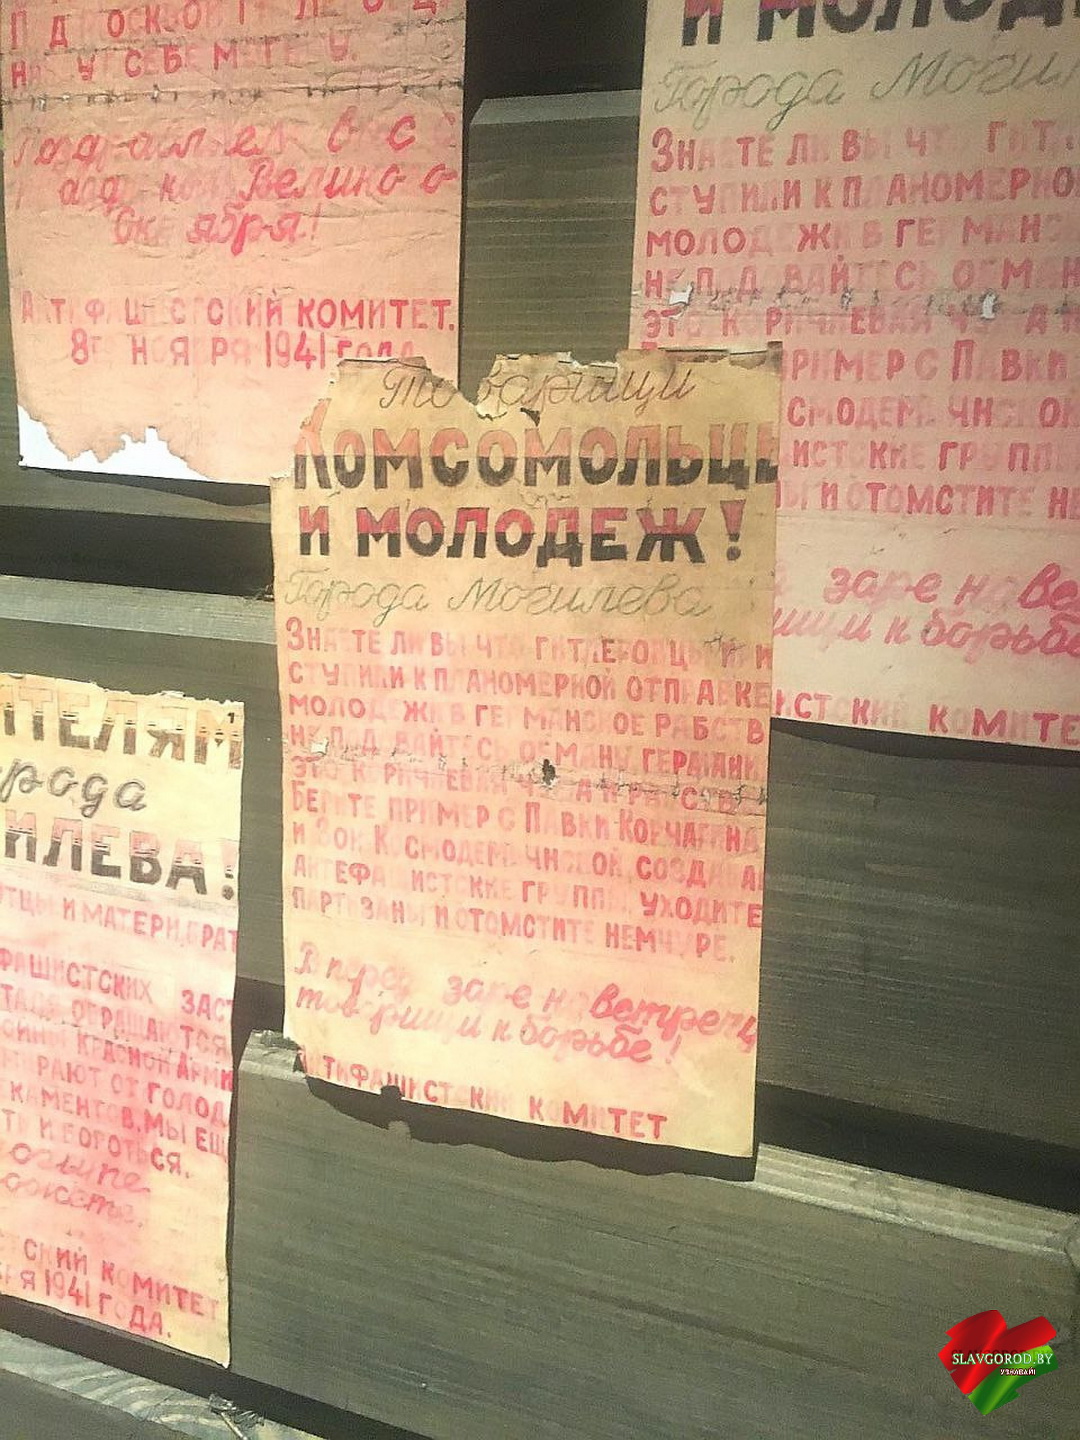 НА У СЕБЯ
Великого
Октября!
АНТИФАШИСТСКИЙ КОМИТЕТ.
8го НОЯБРЯ 1941 года
И МОЛОДЕ
Города Могилев
ЗНАЕТЕ ЛИ ВЫ ЧТО ГИТЛ
СТУПИЛИ К ПЛАНОМЕРНО
МОЛОДЕЖИ В ГЕРМАНС
НЕ ПОДДАВАЙТЕСЬ ОБМАН
ЭТО КОРИЧНЕВАЯ ЧУМА
РИМЕР С ПАВКИ
СМОДЕМЬЯНСКОЙ
ИСТСКИЕ ГРУПП
Ы И ОТОМСТИТЕ НЕ
заре на ве
ищи к борьбе
ИСТСКИЙ КОМИТЕ
Товарищи
КОМСОМОЛЬЦЫ
И МОЛОДЕЖ!
Города Могилева
ЗНАЕТЕ ЛИ ВЫ ЧТО ГИТЛЕРОВЦЫ И
СТУПИЛИ К ПЛАНОМЕРНОЙ ОТПРАВКЕ
МОЛОДЕЖИ В ГЕРМАНСКОЕ РАБСТВ
НЕ ПОДДАВАЙТЕСЬ ОБМАНУ ГЕРМАНИ
ЭТО КОРИЧНЕВАЯ ЧУМА И РАБСТВ
БЕРИТЕ ПРИМЕР С ПАВКИ КОРЧАГИНА
И ЗОИ КОСМОДЕМЬЯНСКОЙ, СОЗДАВА
АНТЕФАШИСТСКИЕ ГРУППЫ, УХОДИТЕ
ПАРТИЗАНЫ И ОТОМСТИТЕ НЕМЧУРЕ.
Вперед заре на ветречу
товарищи к борьбе!
АНТИФАШИСТСКИЙ КОМИТЕТ
ИТЕЛЯМ
орода
ИЛЕВА!
ОТЦЫ И МАТЕРИ, БРАТ
ФАШИСТСКИХ ЗАС
ОБРАЩАЮТСЯ
КРАСНОЙ АРМИ
МИРАЮТ ОТ ГОЛОД
КАМЕНТОВ, МЫ ЕЩ
ТЬ И БОРОТЬСЯ.
СКИЙ КОМИТЕТ
РЯ 1941 ГОДА.
SLAVGOROD.BY
УЗНАВАЙ!